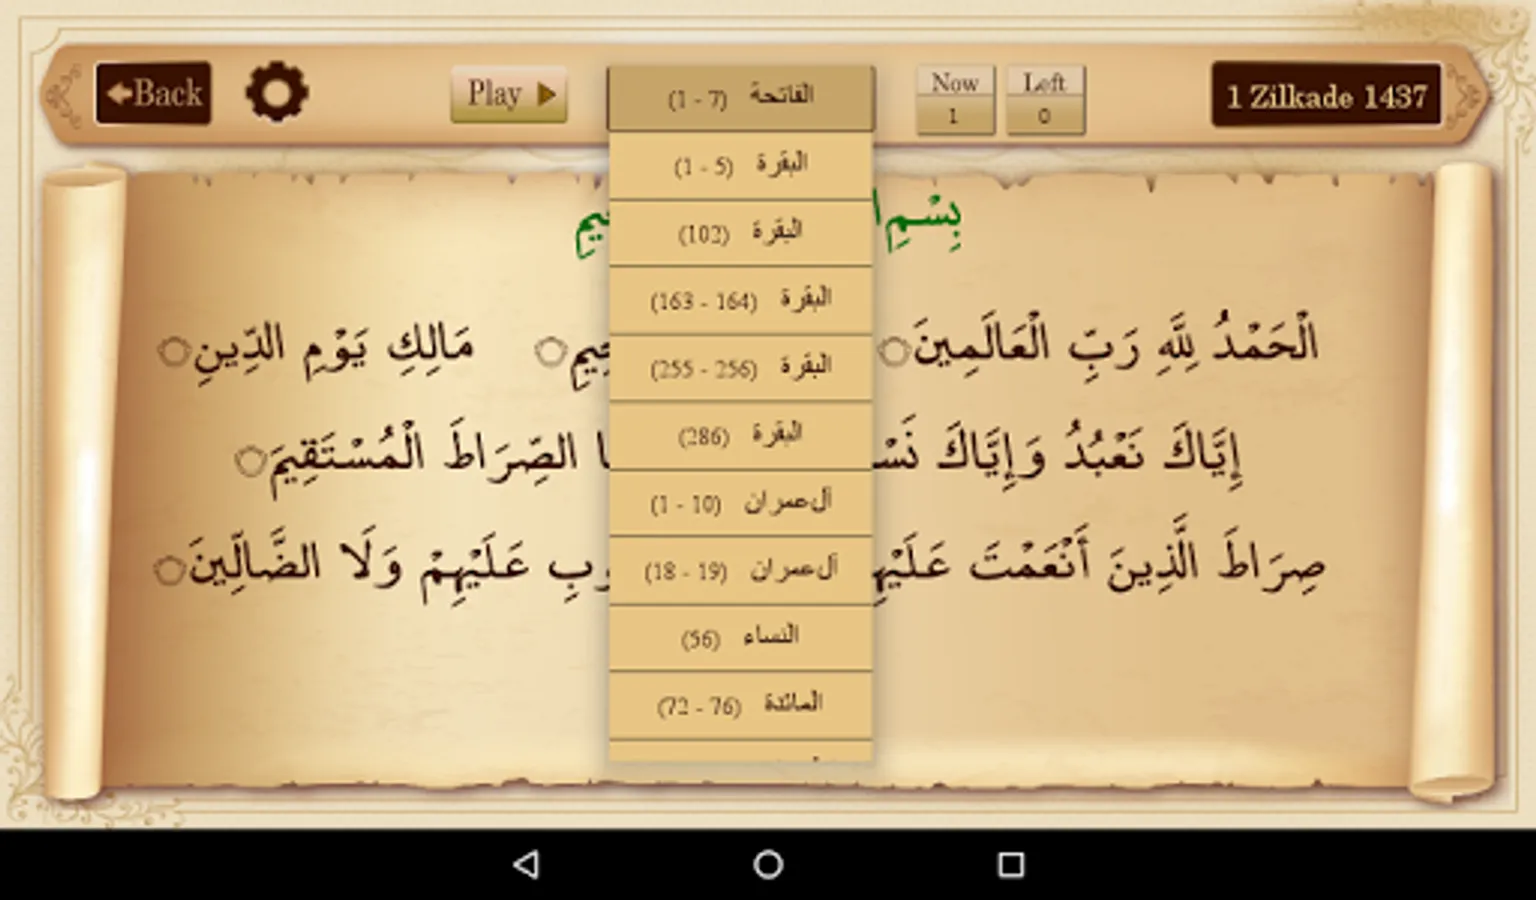 Back
Play
Now
1
Left
0
1 Zilkade 1437
الفاتحة (1 - 7)
البقرة (1 - 5)
البقرة (102)
البقرة (163 - 164)
البقرة (255 - 256)
البقرة (286)
آل عمران (1 - 10)
آل عمران (18 - 19)
النساء (56)
المائدة (72 - 76)
بِسْمِ
الْحَمْدُ لِلَّهِ رَبِّ الْعَالَمِينَ مَالِكِ يَوْمِ الدِّينِ
إِيَّاكَ نَعْبُدُ وَإِيَّاكَ الصِّرَاطَ الْمُسْتَقِيمَ
صِرَاطَ الَّذِينَ أَنْعَمْتَ عَلَيْهِمْ وَلَا الضَّالِّينَ